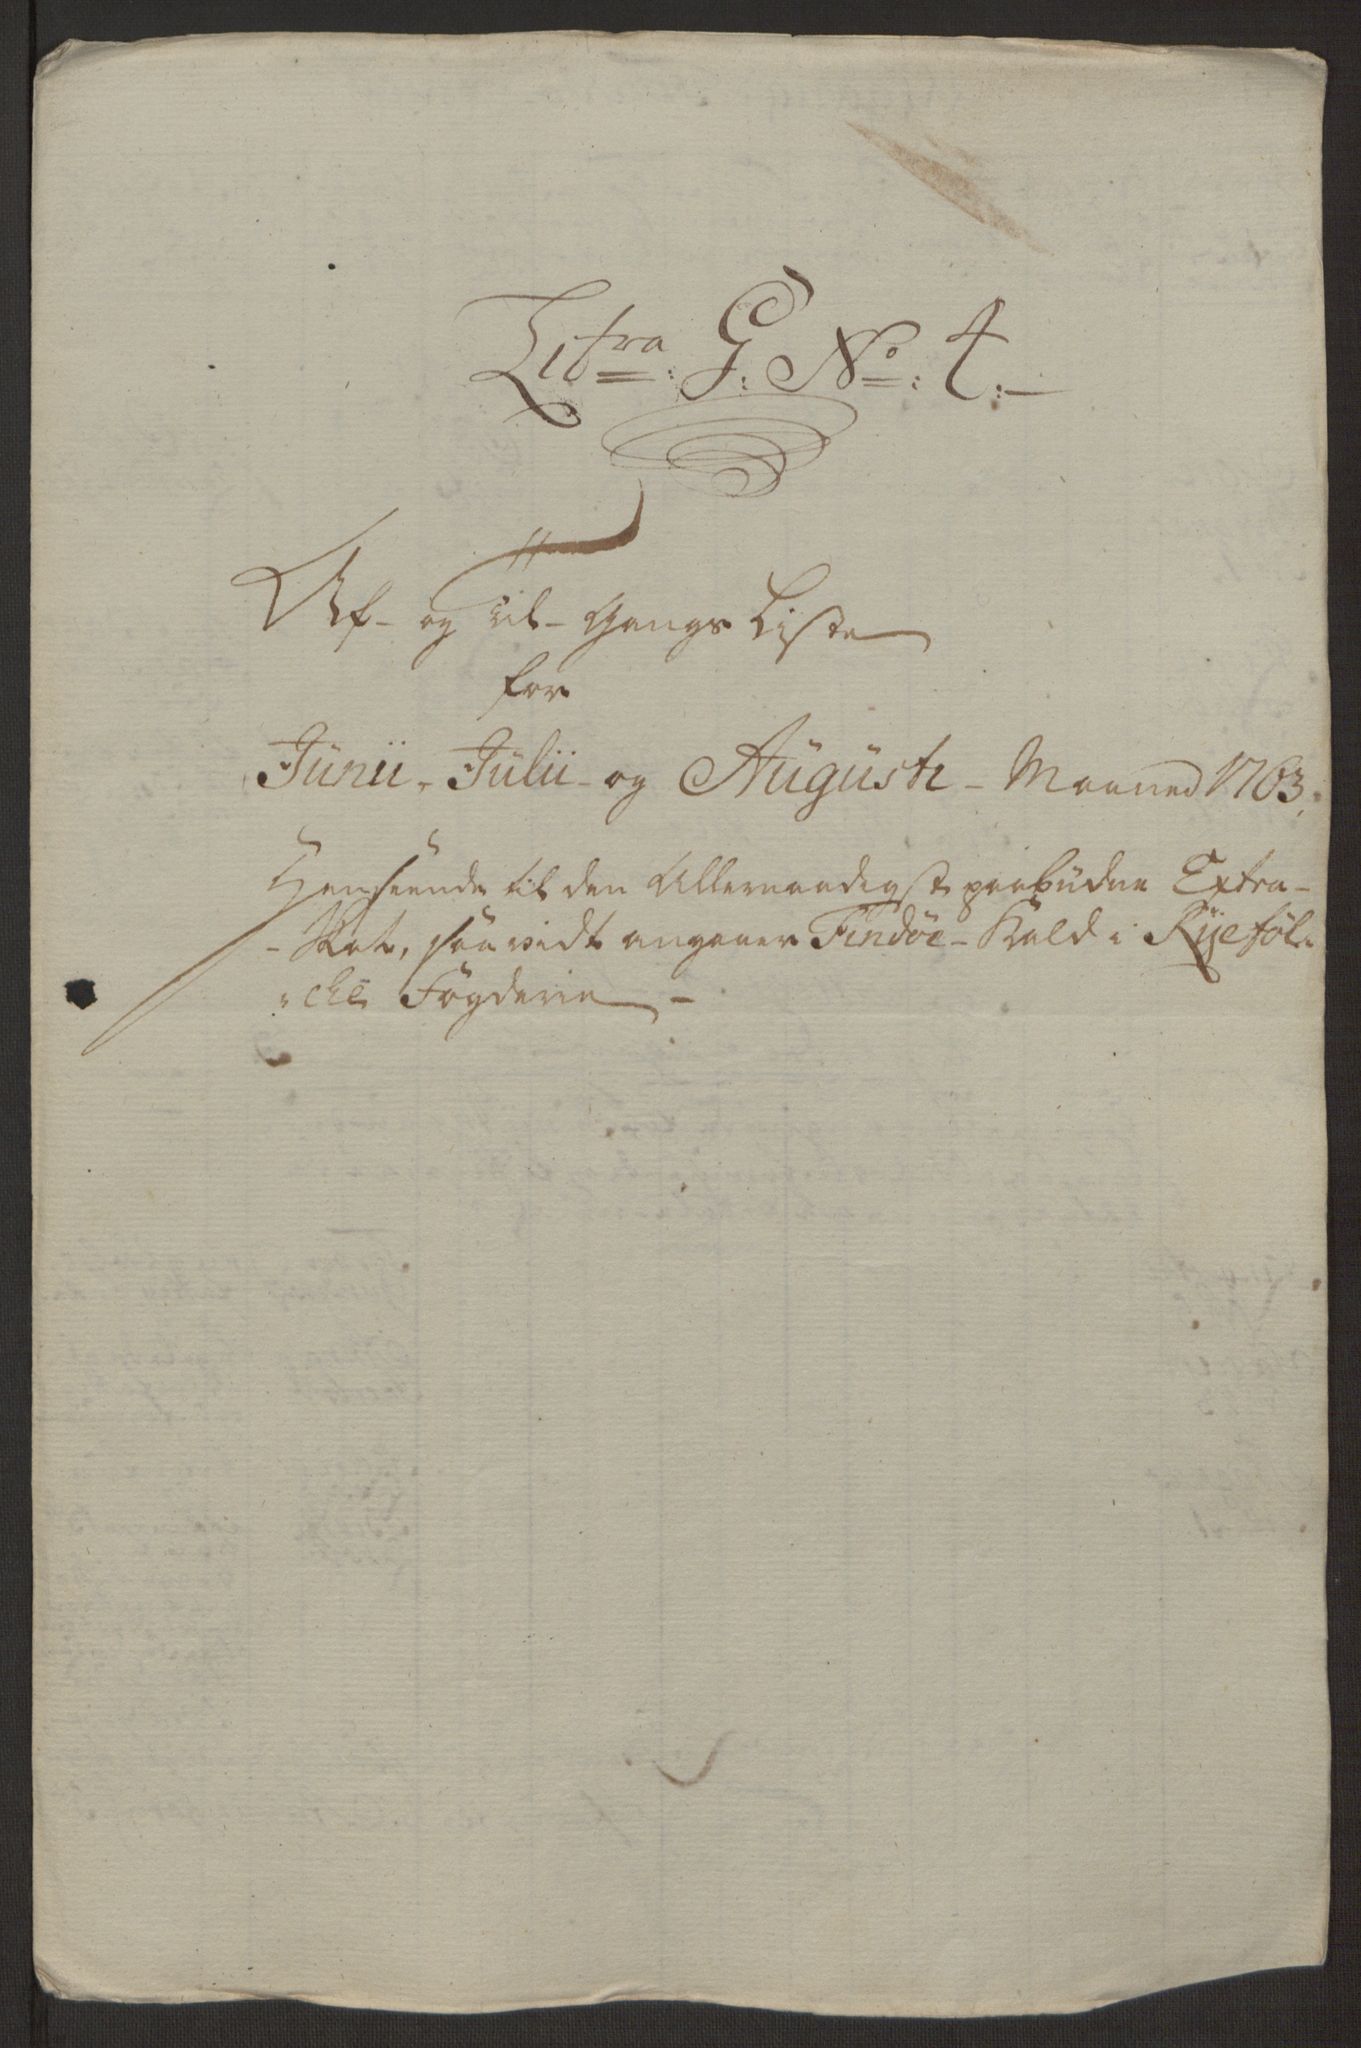 Litra G. No. 4.
Af- og Til- Gangs Liste
for
Junii, Julii og Augusti Maaned 1763.
Henseende til den Allernaadigst paabudne Extra-
-Skat, saavidt angaaer Findöe-Kald i Ryeföl-
-cke Fögderie-